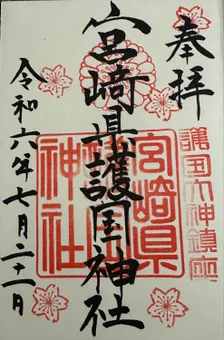 奉拝
護国之神鎮座
宮崎県護国神社
宮崎県
護国
神社
令和六年七月二十一日